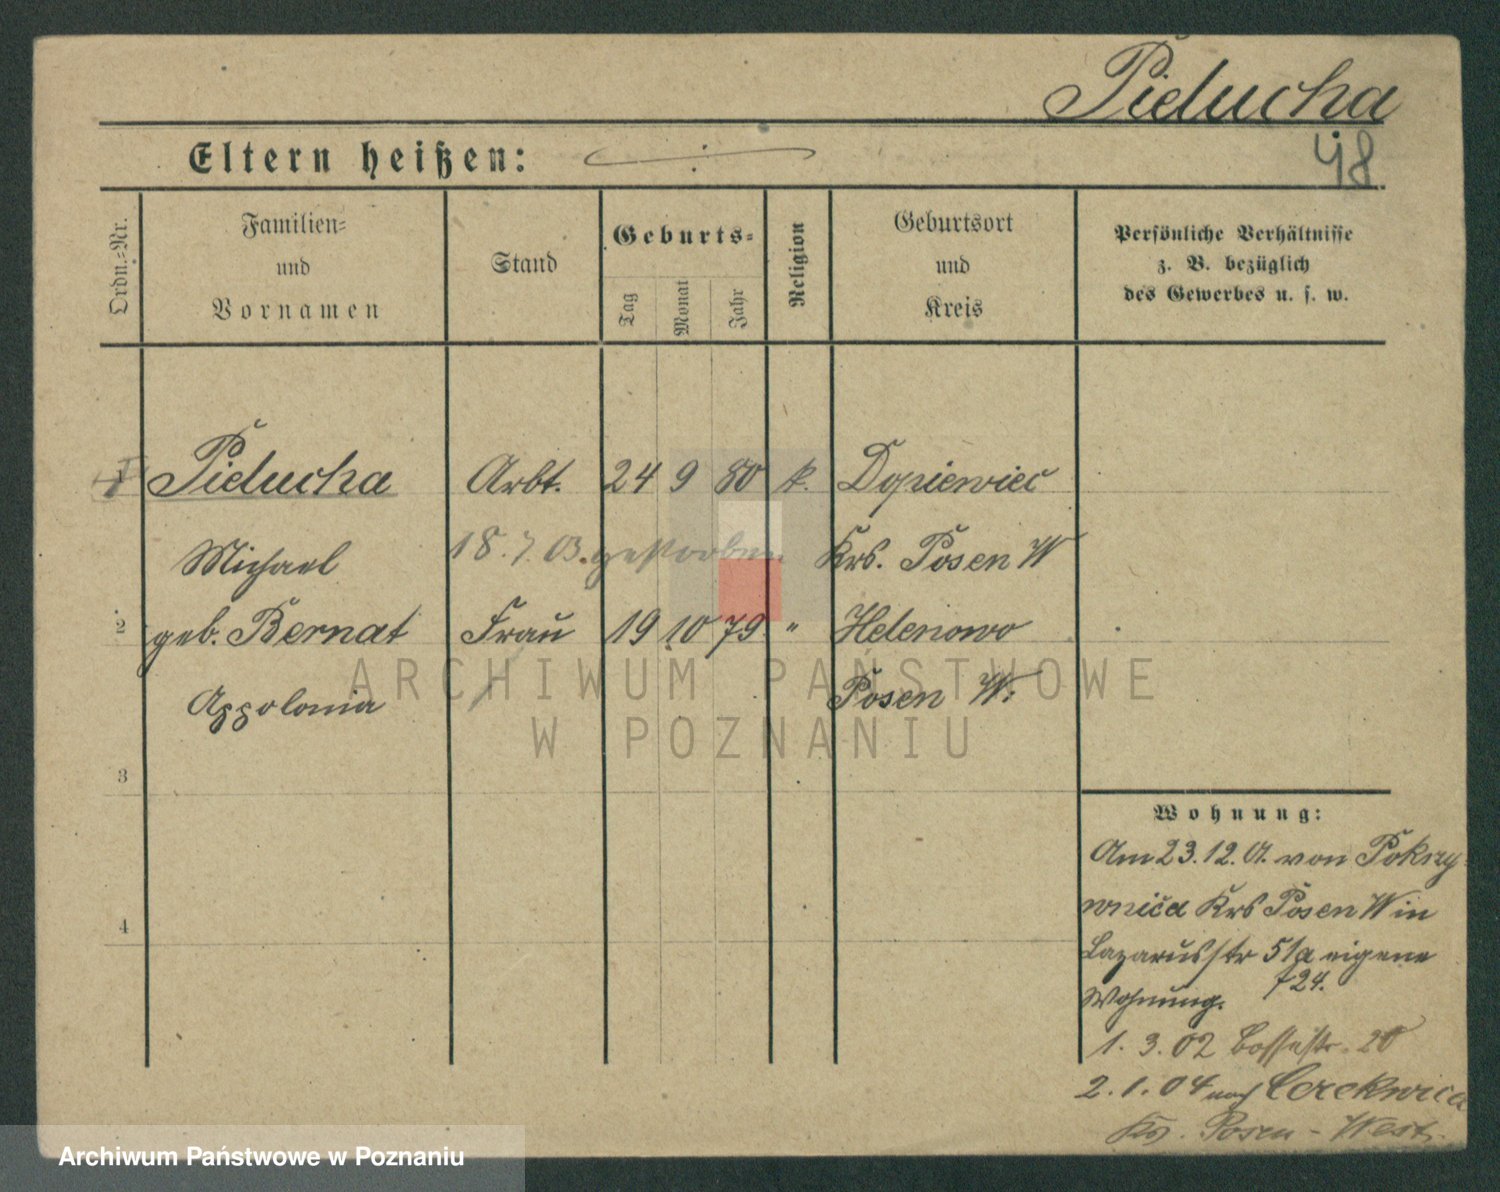 Pielucha
48.
Eltern heißen:
Ordn.=Nr.
Familien=
und
Vornamen
Stand
Geburts=
Tag
Monat
Jahr
Religion
Geburtsort
und
Kreis
Persönliche Verhältnisse
z. B. bezüglich
des Gewerbes u. s. w.
1 Pielucha Arbt. 24 9 80 k. Dopiewiec
Michael 18.7.03. gestorben Krs. Posen W
2 geb. Bernat Frau 19 10 79 " Helenowo
Appolonia Posen W.
3
4
Wohnung:
Am 23.12.01. von Pokrzy
wnica Krs Posen W in
Lazarusstr 51a eigene
Wohnung. 724.
1. 3. 02 20
2. 1. 04 nach Cerekwica
Kr. Posen - West.
ARCHIWUM PAŃSTWOWE
W POZNANIU
Archiwum Państwowe w Poznaniu